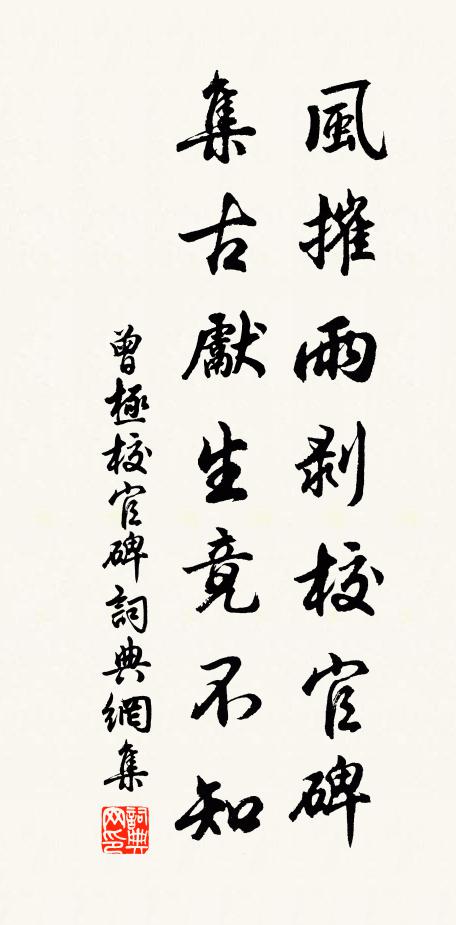 風摧雨剥校官碑
集古獻生竟不知
曾極校官碑詞典網集
詞典網印